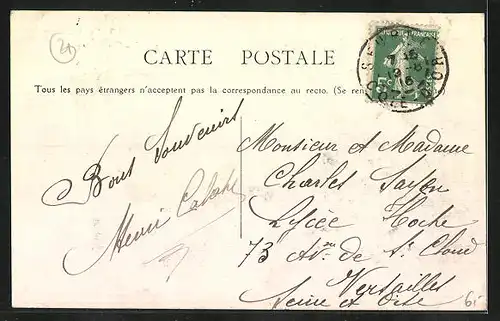 24
CARTE POSTALE
Tous les pays étrangers n'acceptent pas la correspondance au recto. (Se ren
Bons Souvenirs
Henri
Monsieur et Madame
Charles
Lycée Hoche
73 Av. de St Cloud
Versailles
Seine et Oise
5c